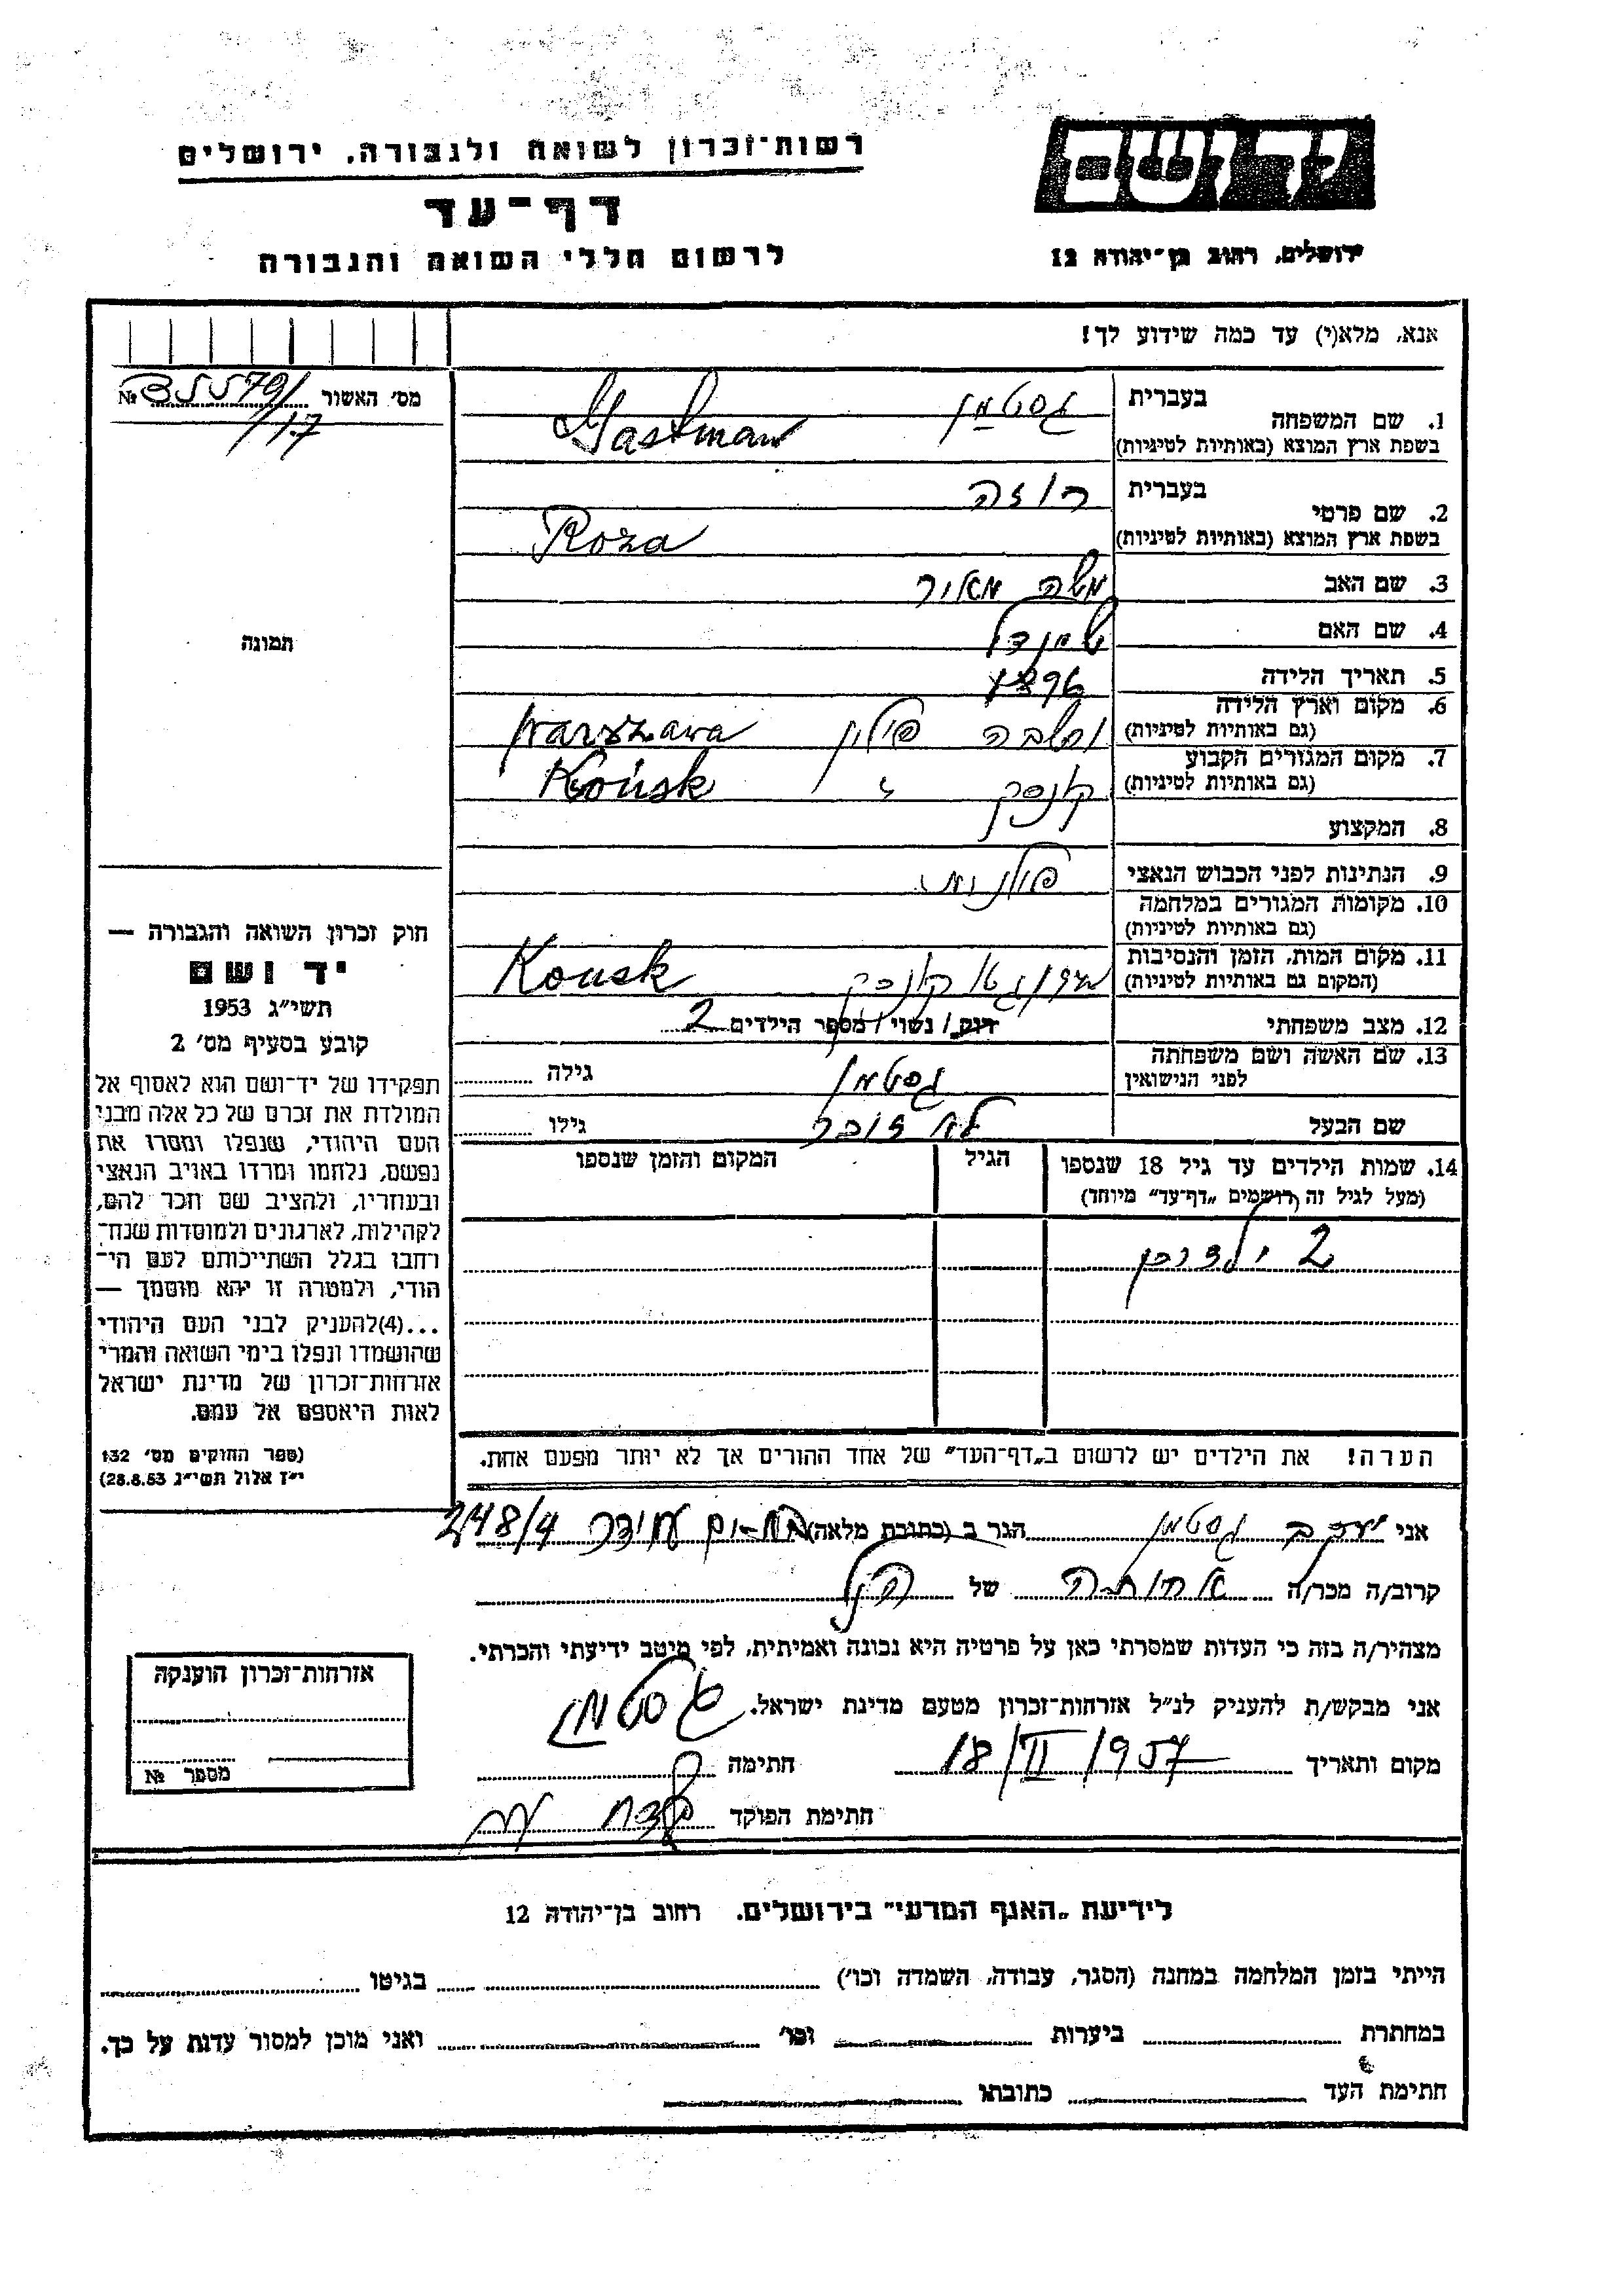 רשות־זכרון לשואה ולגבורה, ירושלים
יד ושם
דף־עד
לרשום חללי השואה והגבורה
ירושלים, רחוב בן־יהודה 12
אנא, מלא(י) עד כמה שידוע לך!
מס׳ האשור №
/17
תמונה
בעברית גסטמן
1. שם המשפחה
בשפת ארץ המוצא (באותיות לטיניות) Gastman
בעברית רוזה
2. שם פרטי
בשפת ארץ המוצא (באותיות לטיניות) Roza
3. שם האב משה מאיר
4. שם האם
5. תאריך הלידה 1896
6. מקום וארץ הלידה ורשבה פולין Warszawa
(גם באותיות לטיניות)
7. מקום המגורים הקבוע קונסק Końsk
(גם באותיות לטיניות)
8. המקצוע
9. הנתינות לפני הכבוש הנאצי פולנית
10. מקומות המגורים במלחמה
(גם באותיות לטיניות)
11. מקום המות, הזמן והנסיבות קונסק Konsk
(המקום גם באותיות לטיניות)
12. מצב משפחתי רוק / נשוי / מספר הילדים 2
13. שם האשה ושם משפחתה גסטמן גילה
לפני הנישואין
שם הבעל לא זוכר גילו
14. שמות הילדים עד גיל 18 שנספו הגיל המקום והזמן שנספו
(מעל לגיל זה רושמים „דף־עד״ מיוחד)
2 ילדים
הערה! את הילדים יש לרשום ב„דף־העד״ של אחד ההורים אך לא יותר מפעם אחת.
חוק זכרון השואה והגבורה —
יד ושם
תשי״ג 1953
קובע בסעיף מס׳ 2
תפקידו של יד־ושם הוא לאסוף אל
המולדת את זכרם של כל אלה מבני
העם היהודי, שנפלו ומסרו את
נפשם, נלחמו ומרדו באויב הנאצי
ובעוזריו, ולהציב שם וזכר להם,
לקהילות, לארגונים ולמוסדות שנח־
רחבו בגלל השתייכותם לעם הי־
הודי, ולמטרה זו יהא מוסמך —
...(4)להעניק לבני העם היהודי
שהושמדו ונפלו בימי השואה והמרי
אזרחות־זכרון של מדינת ישראל
לאות היאספם אל עמם.
(ספר החוקים מס׳ 132
י״ז אלול תשי״ג 28.8.53)
אני יעקב גסטמן הגר ב (כתובת מלאה) 248/4
קרוב/ה מכר/ה של הנ״ל
מצהיר/ה בזה כי העדות שמסרתי כאן על פרטיה היא נכונה ואמיתית, לפי מיטב ידיעתי והכרתי.
אני מבקש/ת להעניק לנ״ל אזרחות־זכרון מטעם מדינת ישראל. גסטמן
מקום ותאריך 18/II/1957 חתימה
חתימת הפוקד
אזרחות־זכרון הוענקה
מספר №
לידיעת „האגף המדעי״ בירושלים. רחוב בן־יהודה 12
הייתי בזמן המלחמה במחנה (הסגר, עבודה, השמדה וכו׳) בגיטו
במחתרת ביערות וכו׳ ואני מוכן למסור עדות על כך.
חתימת העד כתובתו